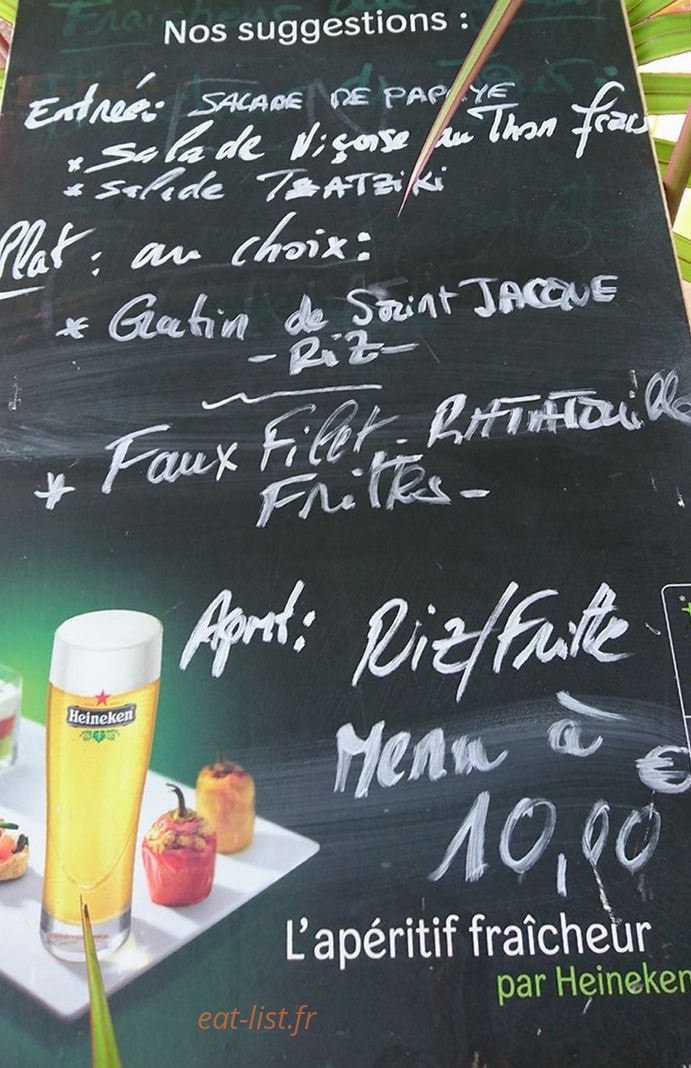 Nos suggestions :
Entrée: SALADE DE PAPAYE
* Salade Niçoise au Thon frais
* Salade TZATZIKI
Plat : au choix :
* Gratin de Saint JACQUE
- RIZ -
* Faux Filet - RATATOUille
Frittes -
Riz/Fritte
Menu à
€
10,90
Heineken
L'apéritif fraîcheur
par Heineken
eat-list.fr